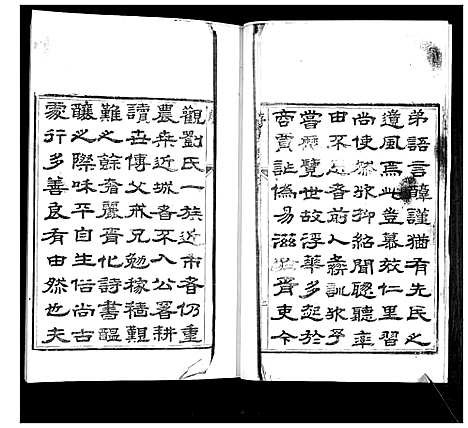 弟語言謹猶有先民之
遺風焉此豈慕於仁里習
尚使然抑紹聞聽聽率
由不愆者前人彝訓歟予
嘗歷覽世故浮華多起於
商賈詐偽易滋胥吏今
觀劉氏一族近市者仍重
農桑近城者不入公署耕
讀世傳父戒兄勉稼穡艱
難之餘奢麗胥化詩書醞
釀之際味平自生俗尚古
家行多善良有由然也夫